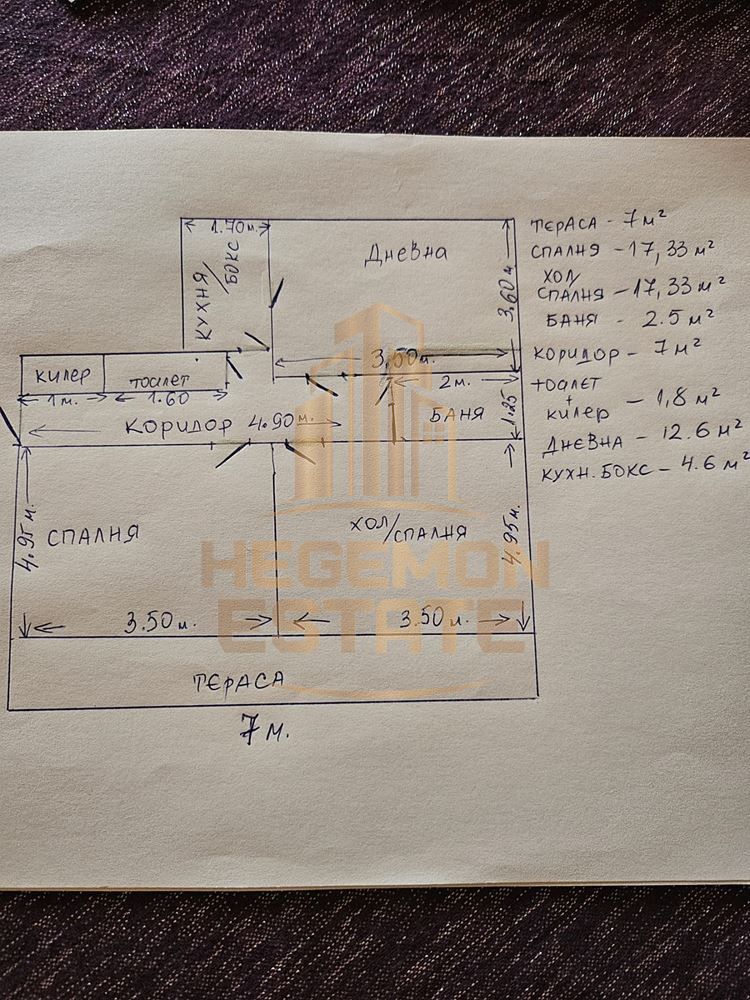 1.70 м.
КУХНЯ/БОКС
Дневна
3.60 м
3,50 м.
килер
тоалет
1 м.
1.60
2 м.
коридор 4.90 м.
БАНЯ
1.25
4.95 м.
СПАЛНЯ
ХОЛ/СПАЛНЯ
4.95 м.
3.50 м.
3.50 м.
ТЕРАСА
7 м.
ТЕРАСА - 7 м²
СПАЛНЯ - 17,33 м²
ХОЛ/
СПАЛНЯ - 17,33 м²
БАНЯ - 2.5 м²
КОРИДОР - 7 м²
тоалет
+
килер - 1,8 м²
ДНЕВНА - 12.6 м²
КУХН. БОКС - 4.6 м²
HEGEMON
ESTATE